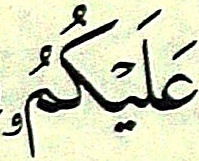 عَلَيْكُمُۥ